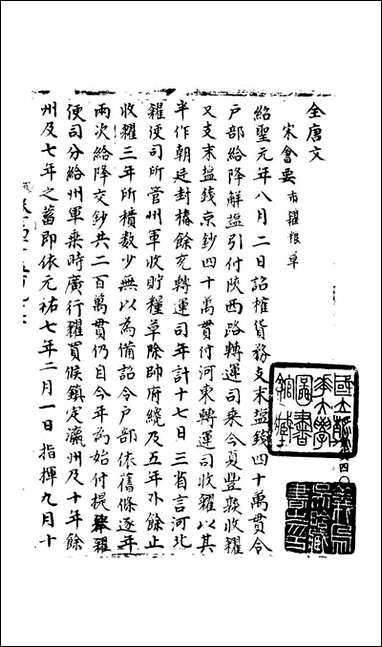 全唐文
宋會要 市糴糧草
紹聖元年八月二日詔榷貨務支末鹽錢四十萬貫令
户部給降解鹽引付陝西路轉運司乘今夏豐熟收糴
又支末鹽錢京鈔四十萬貫付河東轉運司收糴以其
半作朝廷封樁餘充轉運司年計十七日三省言河北
糴便司所管州軍收貯糧草除帥府纔及五年外餘止
收糴三年所積數少無以為備詔令户部依舊條逐年
兩次給降交鈔共二百萬貫仍自今年為始付提舉糴
便司分給州軍乘時廣行糴買候鎮定瀛州及十年餘
州及七年之蓄即依元祐七年二月一日指揮九月十